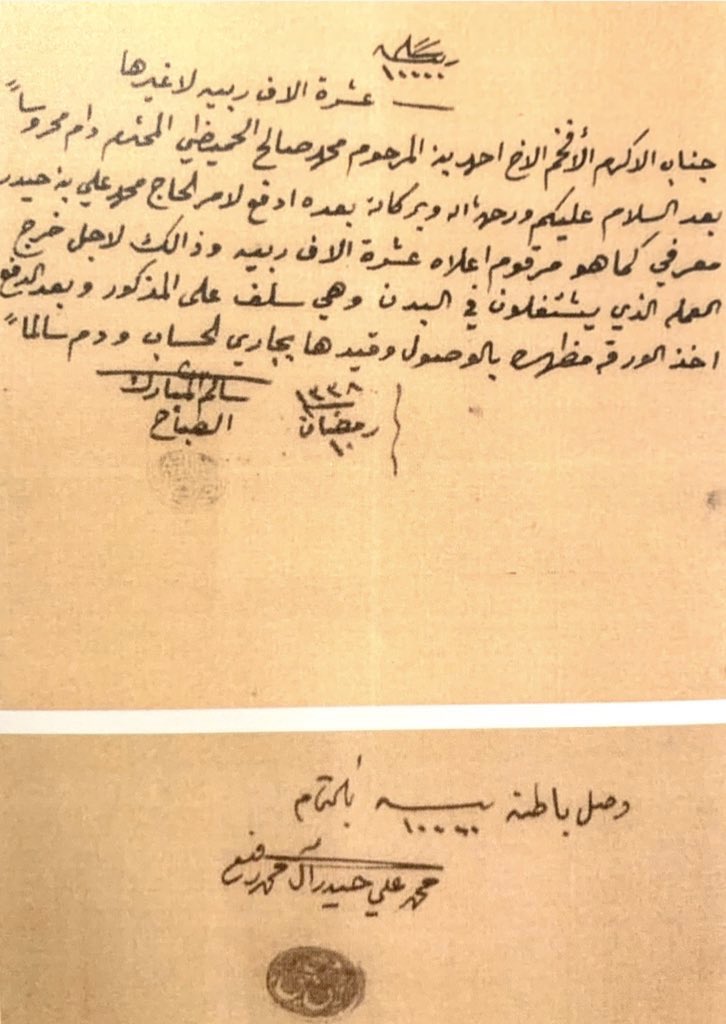 ربيه
١٠٠٠٠
عشرة الاف ربيه لاغيرها
جناب الاكرم الأفخم الاخ احمد بن المرحوم محمد صالح الحميضي المحترم دام محروساً
بعد السلام عليكم ورحمة الله وبركاته بعده ادفع لامر الحاج محمد علي بن حيدر
معرفي كما هو مرقوم اعلاه عشرة الاف ربيه وذالك لاجل خرج
العمله الذي يشتغلون في البدن وهي سلف على المذكور وبعد الدفع
اخذ الورقه مظهره بالوصول وقيدها بجاري الحساب ودم سالماً
١٣٣٨
رمضان
١٠
سالم المبارك
الصباح
وصل باطنه ربيه ١٠٠٠٠ بالتمام
محمد علي حيدر آل محمد رفيع